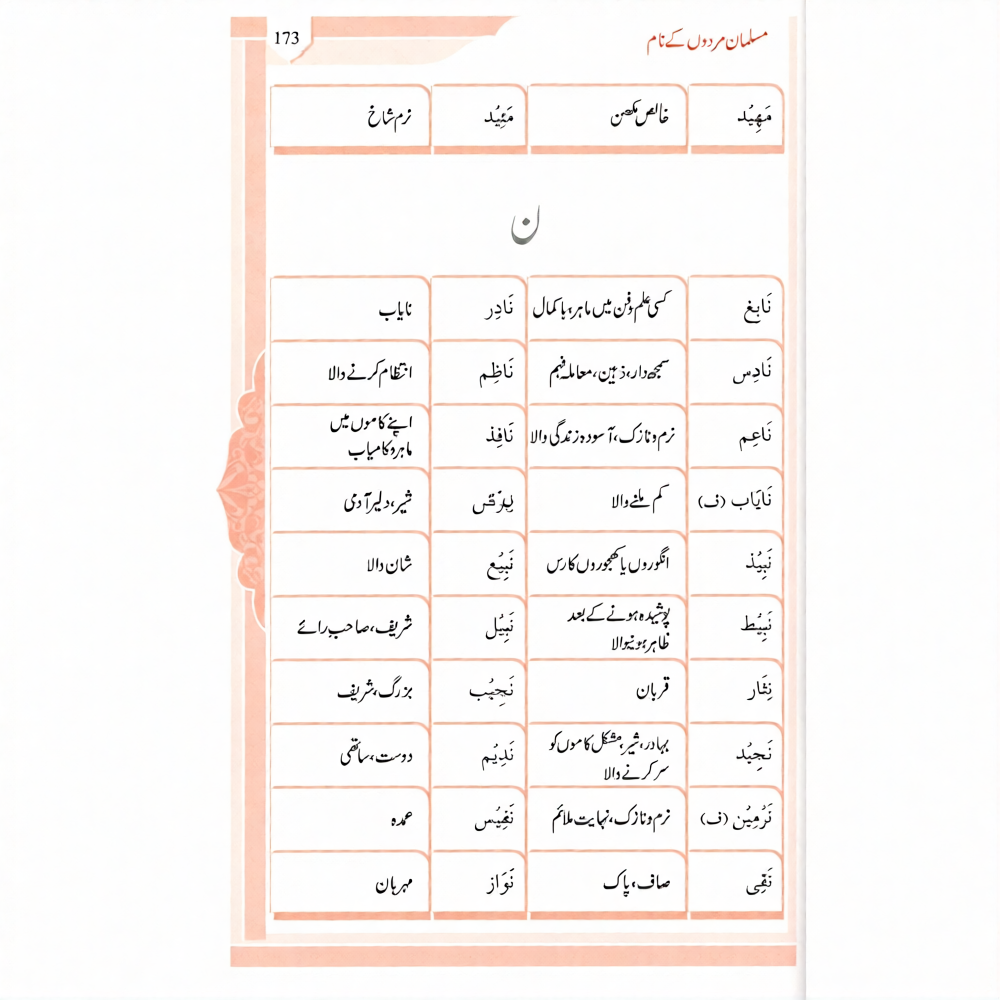 173
مسلمان مردوں کے نام
مَهِيْد خالص مکھن مَئِيْد نرم شاخ
ن
نَابِغ کسی علم وفن میں ماہر، باکمال نَادِر نایاب
نَادِس سمجھ دار، ذہین، معاملہ فہم نَاظِم انتظام کرنے والا
نَاعِم نرم ونازک، آسودہ زندگی والا نَافِذ اپنے کاموں میں
ماہر وکامیاب
نَايَاب (ف) کم ملنے والا شیر، دلیر آدمی
نَبِيْذ انگوروں یا کھجوروں کا رس نَبِيْع شان والا
نَبِيْط پوشیدہ ہونے کے بعد
ظاہر ہونیوالا نَبِيْل شریف، صاحب رائے
نِثَار قربان نَجِيْب بزرگ، شریف
نَجِيْد بہادر، شیر، مشکل کاموں کو
سر کرنے والا نَدِيْم دوست، ساتھی
نَرْمِيْن (ف) نرم ونازک، نہایت ملائم نَفِيْس عمدہ
نَقِی صاف، پاک نَوَاز مہربان